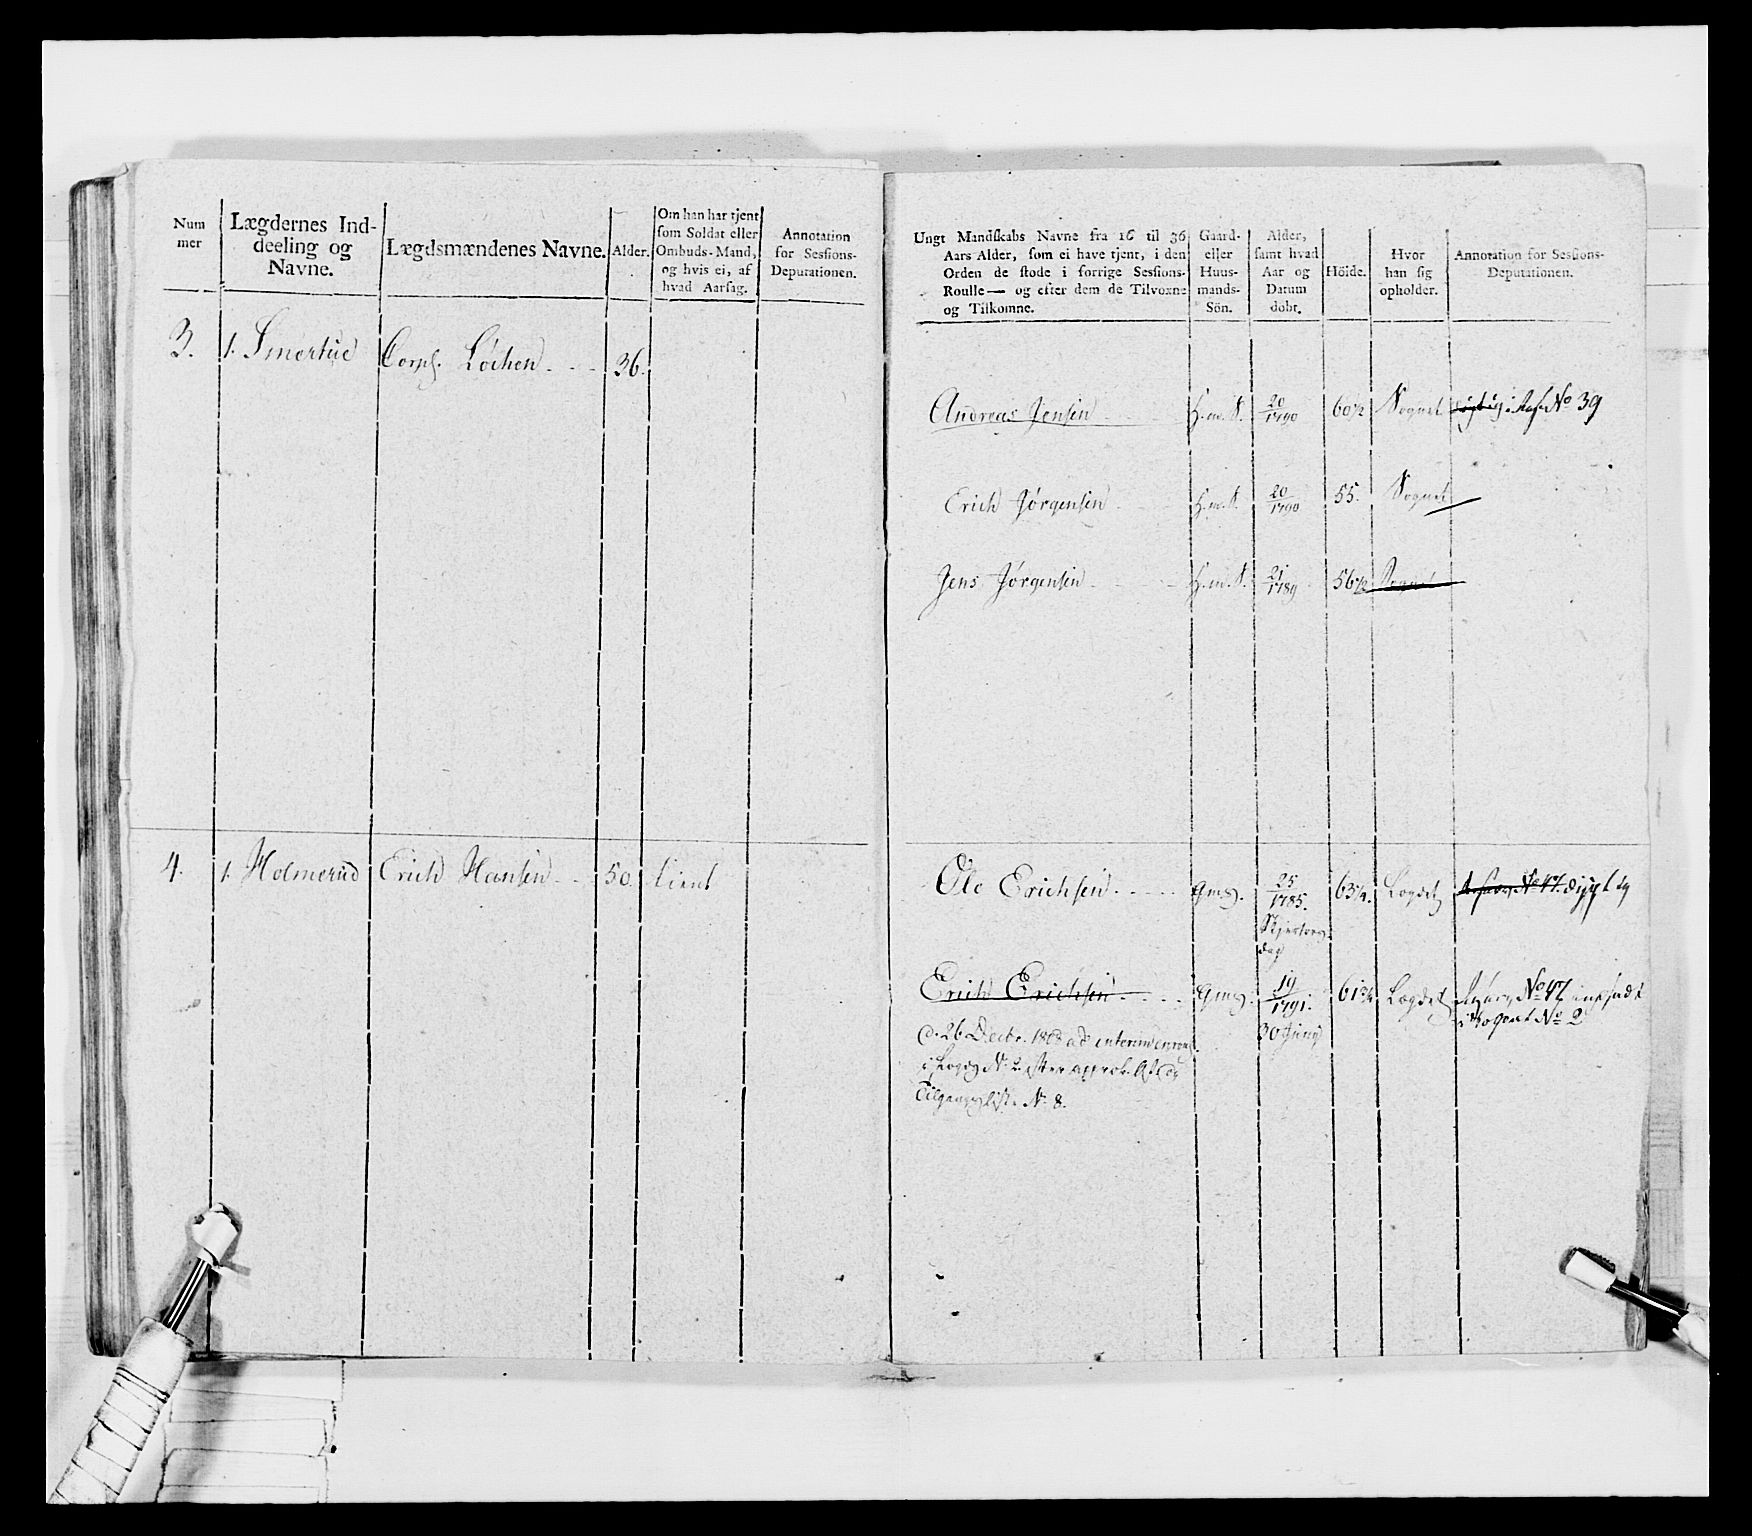 Num
mer
Lægdernes Ind-
deeling og
Navne.
Lægdsmændenes Navne.
Alder.
Om han har tjent
som Soldat eller
Ombuds-Mand,
og hvis ei, af
hvad Aarsag.
Annotation
for Sessions-
Deputationen.
3. 1. Smertue Corpl. Løchen 36.
4. 1. Holmerud Erich Hansen 50. tient
Ungt Mandskabs Navne fra 16 til 36
Aars Alder, som ei have tjent, i den
Orden de stode i forrige Sessions-
Roulle — og efter dem de Tilvoxne
og Tilkomne.
Gaard-
eller
Huus-
mands-
Sön.
Alder,
samt hvad
Aar og
Datum
döbt.
Höide.
Hvor
han sig
opholder.
Annotation for Sessions-
Deputationen.
Andreas Jensen H.m.S. 20/1790 60 1/2 Sognet No 39
Erich Jørgensen H.m.S. 20/1790 55. Sognet
Jens Jørgensen H.m.S. 21/1789 56 1/2 Sognet
Ole Erichsen gms. 25/1785. 63 1/4. Lægdet No 47.
Erich Erichsen gms. 19/1791. 61 3/4 Lægdet No 47
30 Juny
No 2
d. 26 Decbr. 1808 ad interim
i Lægd No 2 efter approb.
Tilgangsliste No 8.